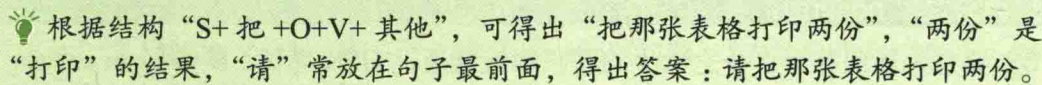 根据结构“S+ 把 +O+V+ 其他”，可得出“把那张表格打印两份”，“两份”是
“打印”的结果，“请”常放在句子最前面，得出答案：请把那张表格打印两份。